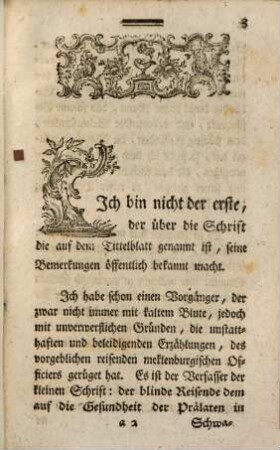 3
Ich bin nicht der erste,
der über die Schrift
die auf dem Tittelblatt genannt ist, seine
Bemerkungen öffentlich bekannt macht.
Ich habe schon einen Vorgänger, der
zwar nicht immer mit kaltem Blute, jedoch
mit unverwerflichen Gründen, die unstatt-
haften und beleidigenden Erzählungen, des
vorgeblichen reisenden meklenburgischen Of-
ficiers gerüget hat. Es ist der Verfasser der
kleinen Schrift: der blinde Reisende dem
auf die Gesundheit der Prälaten in
a 2 Schwa-